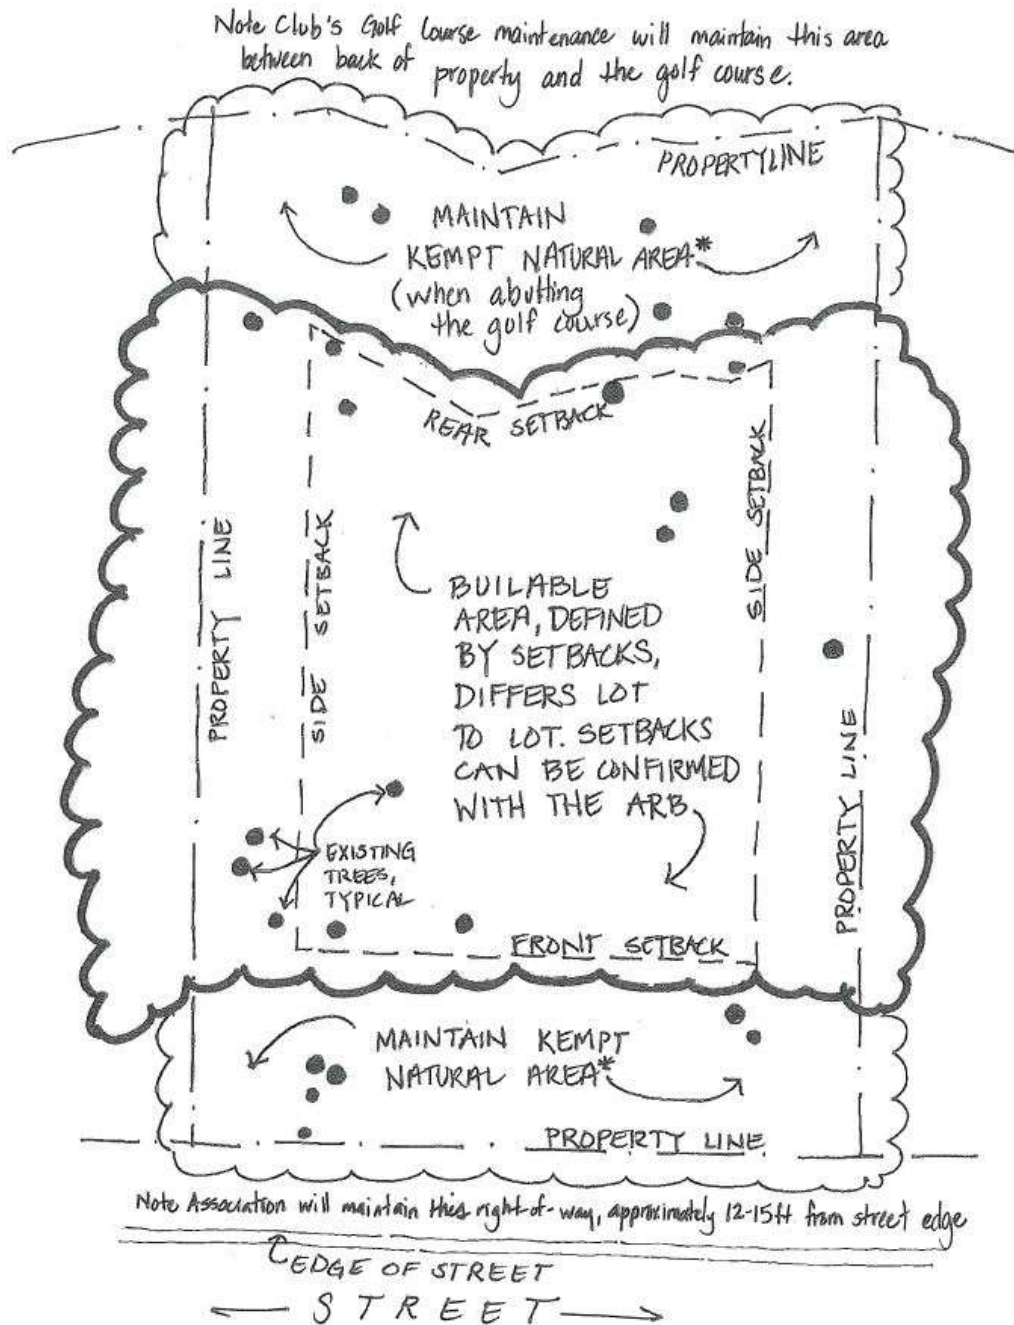 Note Club's Golf Course maintenance will maintain this area
between back of property and the golf course.
PROPERTYLINE
MAINTAIN
KEMPT NATURAL AREA*
(when abutting
the golf course)
REAR SETBACK
SIDE SETBACK
PROPERTY LINE
SIDE SETBACK
BUILABLE
AREA, DEFINED
BY SETBACKS,
DIFFERS LOT
TO LOT. SETBACKS
CAN BE CONFIRMED
WITH THE ARB
PROPERTY LINE
EXISTING
TREES,
TYPICAL
FRONT SETBACK
MAINTAIN KEMPT
NATURAL AREA*
PROPERTY LINE
Note Association will maintain this right-of-way, approximately 12-15ft from street edge
EDGE OF STREET
STREET